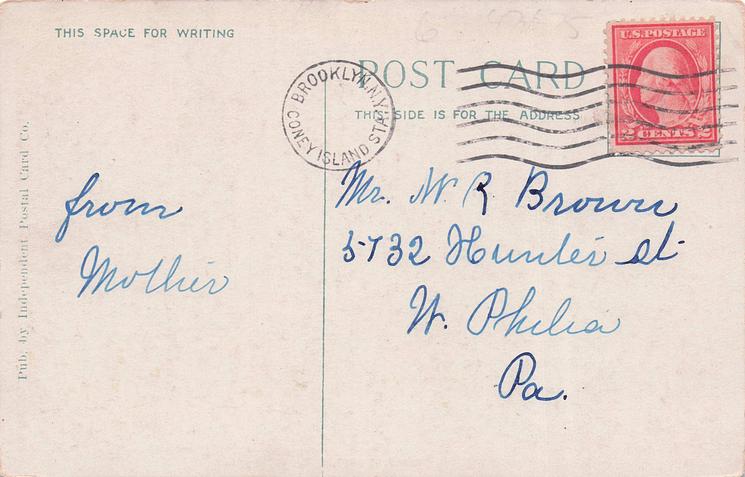 THIS SPACE FOR WRITING
POST CARD
THIS SIDE IS FOR THE ADDRESS
U.S. POSTAGE
2 CENTS 2
BROOKLYN, N.Y.
CONEY ISLAND STA.
from
Mother
Mr. W. R Brown
5732 Hunter st
W. Phila
Pa.
Pub. by Independent Postal Card Co.